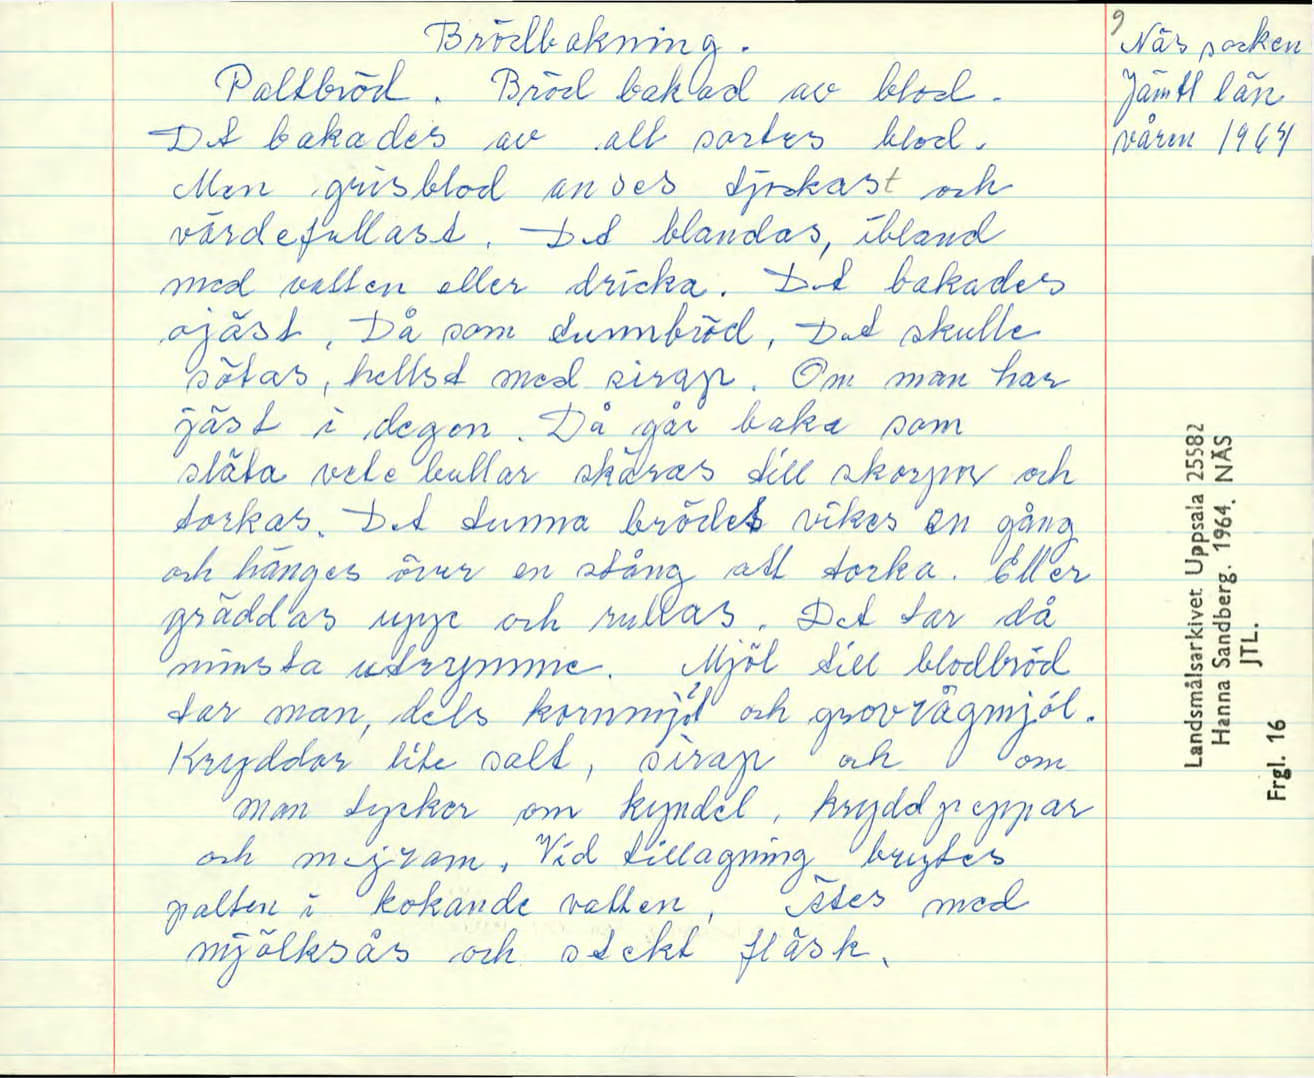 Brödbakning.
Paltbröd. Bröd bakad av blod.
Det bakades av all sortes blod.
Men grisblod anses tjockast och
värdefullast. Det blandas, ibland
med vatten eller dricka. Det bakades
ojäst. Då som tunnbröd, Det skulle
sötas, hellst med sirap. Om man har
jäst i degen. Då går baka som
släta vete bullar skäras till skorpor och
torkas. Det tunna brödet vikes en gång
och hänges över en stång att torka. Eller
gräddas uppe och rullas. Det tar då
minsta utrymme. Mjöl till blodbröd
tar man, dels kornmjöl och grovrågmjöl.
Kryddor lite salt, sirap och om
man tycker om kyndel, kryddpeppar
och mejram. Vid tillagning brytes
palten i kokande vatten, Ätes med
mjölksås och stekt fläsk.
9
Näs socken
Jämtl län
våren 1964
Landsmålsarkivet Uppsala 25582
Hanna Sandberg. 1964. NÄS
JTL.
Frgl. 16